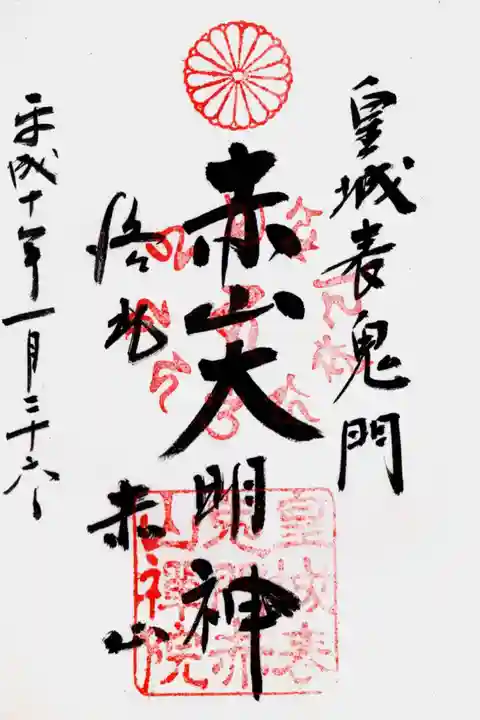 皇城表鬼門
赤山大明神
洛北
赤山
平成十年一月二十六日
皇城表
鬼門赤
山禅院